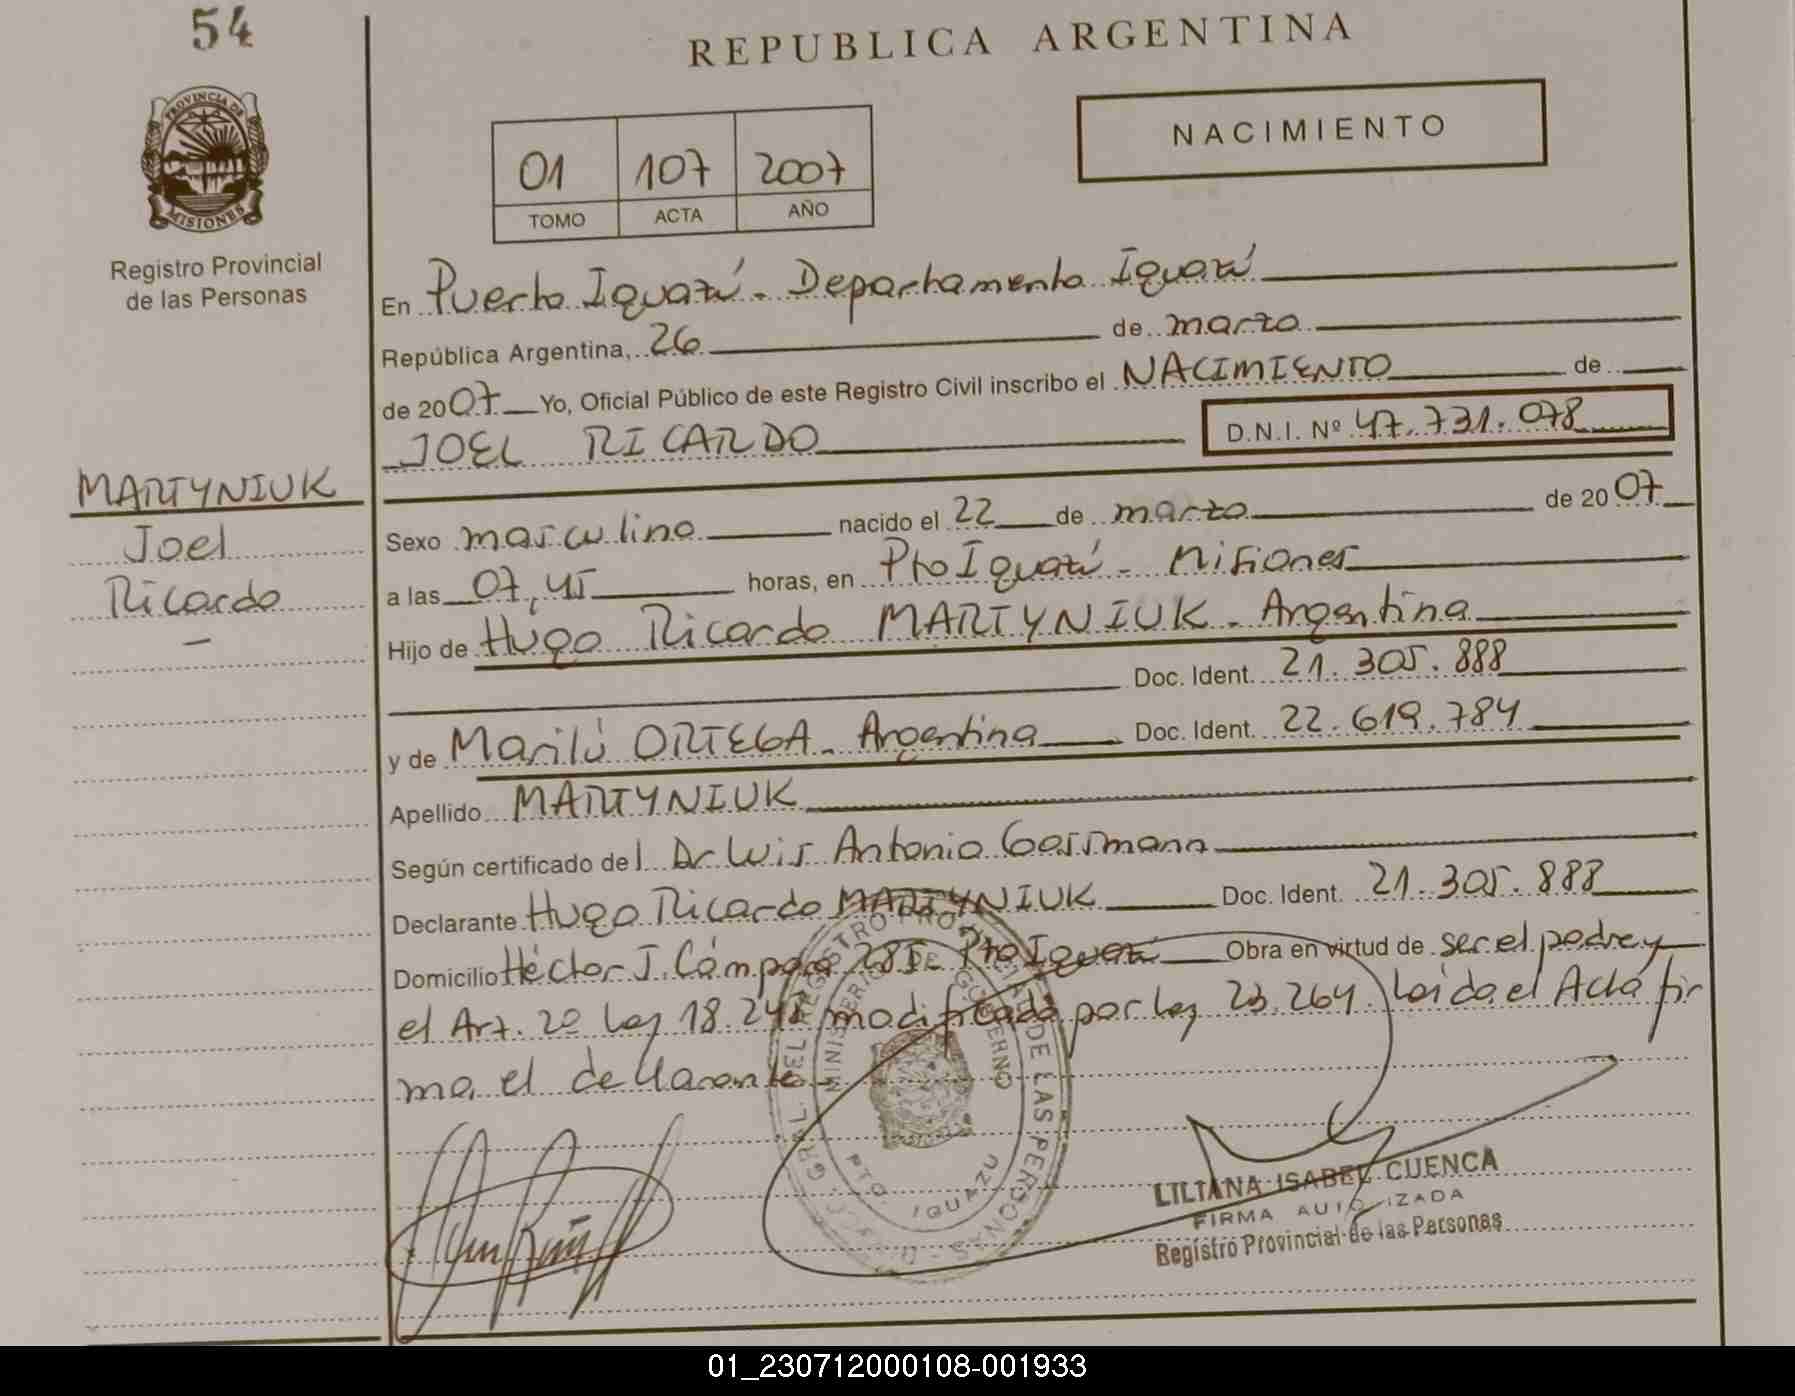 54
REPUBLICA ARGENTINA
PROVINCIA DE
MISIONES
Registro Provincial
de las Personas
NACIMIENTO
01 107 2007
TOMO ACTA AÑO
En Puerto Iguazú - Departamento Iguazú
República Argentina, 26 de marzo
de 2007 Yo, Oficial Público de este Registro Civil inscribo el NACIMIENTO de
JOEL RICARDO D.N.I. Nº 47.731.078
MARTYNIUK
Joel
Ricardo
Sexo masculino nacido el 22 de marzo de 2007
a las 07,45 horas, en Pto Iguazú - Misiones
Hijo de Hugo Ricardo MARTYNIUK - Argentina
Doc. Ident. 21.305.888
y de Marilú ORTEGA - Argentina Doc. Ident. 22.619.784
Apellido MARTYNIUK
Según certificado del Dr Luis Antonio
Declarante Hugo Ricardo MARTYNIUK Doc. Ident. 21.305.888
Domicilio Héctor J. Cámpora Pto Iguazú Obra en virtud de ser el padre y
el Art. 2º Ley 18.248 modificada por Ley 23.264. Leida el Acta fir
ma el declarante -
MINISTERIO DE GOBIERNO
PTO. IGUAZU
LILIANA ISABEL CUENCA
FIRMA AUTORIZADA
Registro Provincial de las Personas
01_230712000108-001933